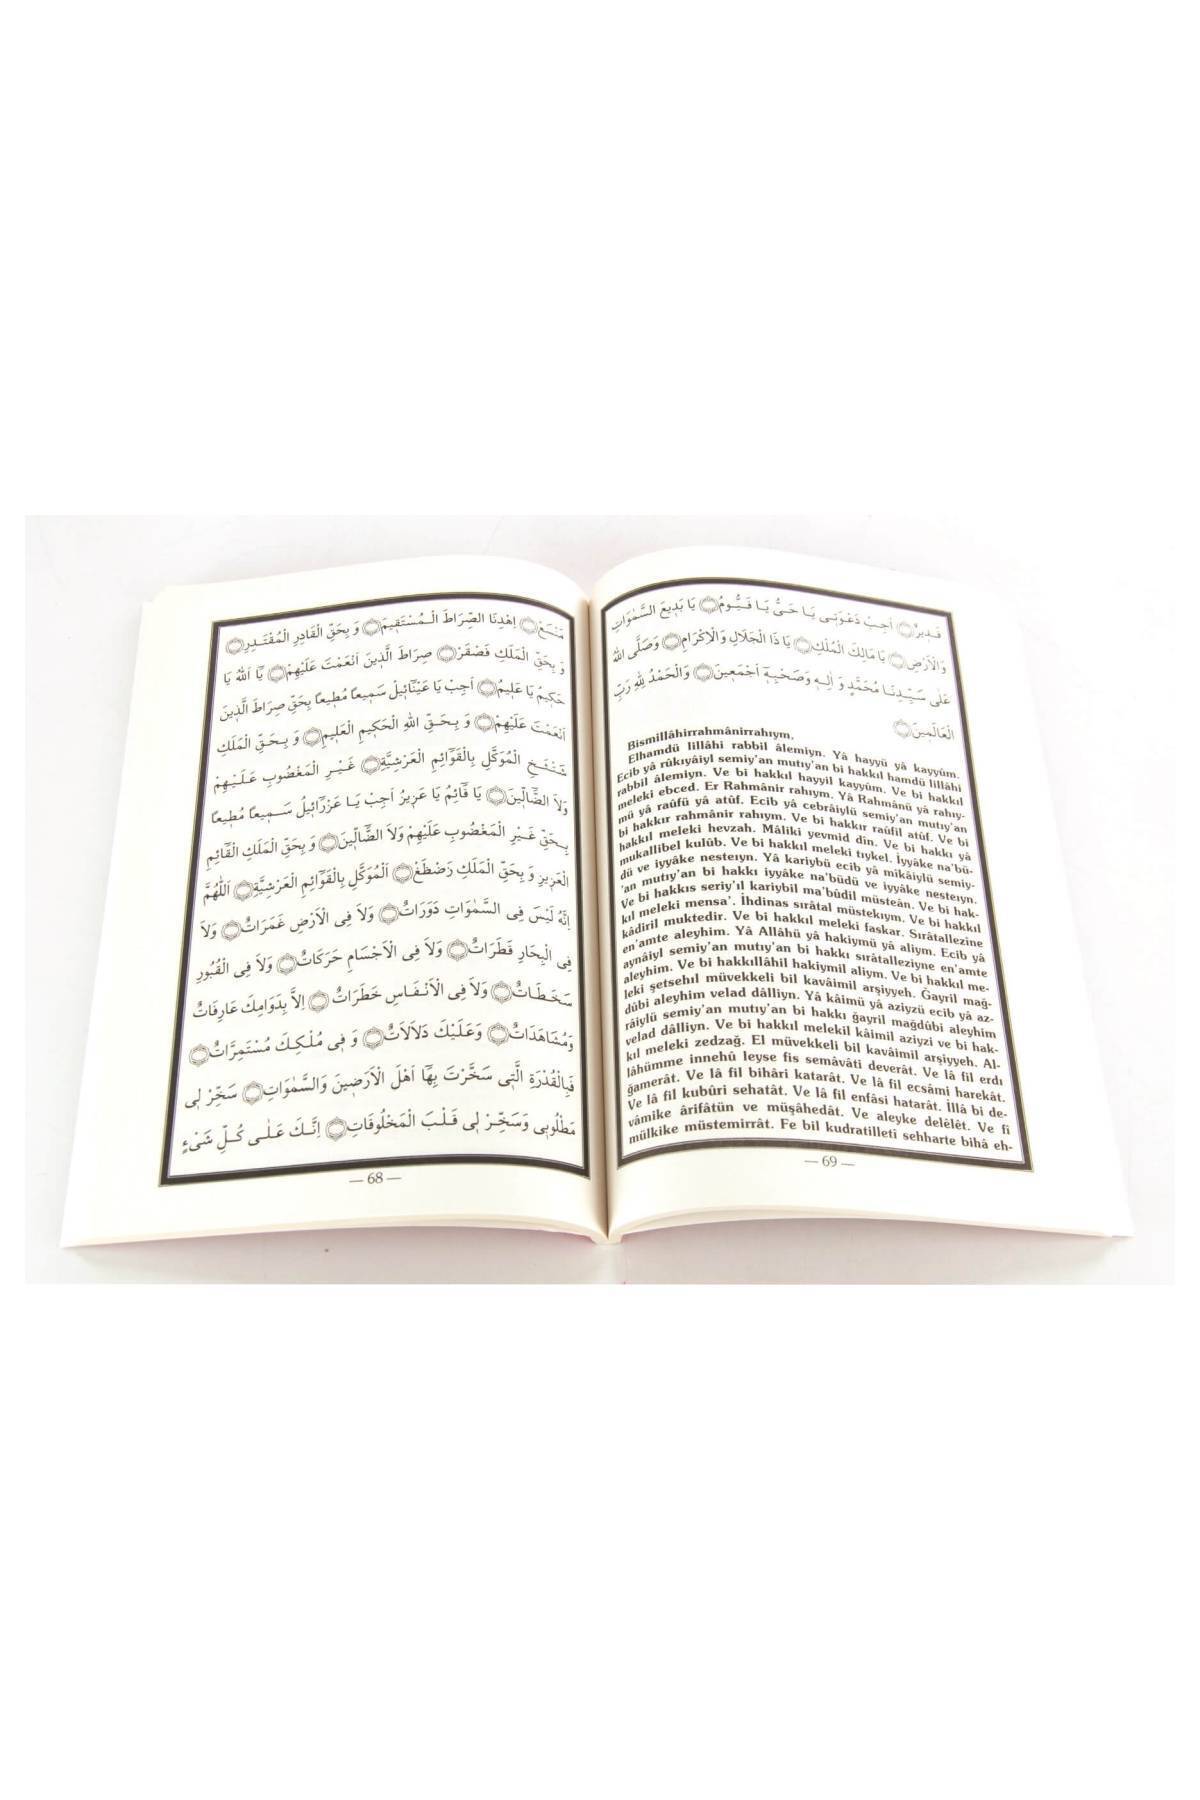 مَنْسَعْ۝ اِهْدِنَا الصِّرَاطَ الْـمُسْتَقِيمَ۝ وَ بِحَقِّ الْقَادِرِ الْمُقْتَدِرِ۝
وَ بِحَقِّ الْمَلَكِ فَصْقَرْ۝ صِرَاطَ الَّذِينَ اَنْعَمْتَ عَلَيْهِمْ۝ يَا اَللّٰهُ يَا
حَكِيمُ يَا عَلِيمُ۝ اَجِبْ يَا عَيْنَائِيلْ سَمِيعاً مُطِيعاً بِحَقِّ صِرَاطَ الَّذِينَ
اَنْعَمْتَ عَلَيْهِمْ۝ وَ بِـحَـقِّ اللّٰهِ الْحَكِيمِ الْعَلِيمِ۝ وَ بِـحَـقِّ الْمَلَكِ
شَتْسَخِ الْمُوَكَّلِ بِالْقَوَآئِمِ الْعَرْشِيَّةِ۝ غَيْـرِ الْمَغْضُوبِ عَـلَـيْـهِمْ
وَلاَ الضَّآلِّينَ۝ يَا قَآئِمُ يَا عَزِيزُ اَجِبْ يَـا عَزْرَآئِيلُ سَـمِيعاً مُطِيعاً
بِـحَقِّ غَيْـرِ الْمَغْضُوبِ عَلَيْهِمْ وَلاَ الضَّآلِّينَ۝ وَ بِحَقِّ الْمَلَكِ الْقَآئِمِ
الْعَزِيزِ وَ بِحَقِّ الْمَلَكِ زَضْظَغْ۝ اَلْمُوَكَّلِ بِالْقَوَآئِمِ الْعَرْشِيَّةِ۝ اَللّٰهُمَّ
اِنَّهُ لَيْسَ فِى السَّمٰوَاتِ دَوَرَاتٌ۝ وَلاَ فِى الْاَرْضِ غَمَرَاتٌ۝ وَلاَ
فِى الْبِحَارِ قَطَرَاتٌ۝ وَلاَ فِى الْاَجْسَامِ حَرَكَاتٌ۝ وَلاَ فِى الْقُبُورِ
سَخَطَاتٌ۝ وَلاَ فِى الْاَنْـفَـاسِ خَطَرَاتٌ۝ اِلاَّ بِدَوَامِكَ عَارِفَاتٌ
وَمُشَاهَدَاتٌ۝ وَعَلَيْكَ دَلاَلاَتٌ۝ وَ فِى مُلْكِكَ مُسْتَمِرَّاتٌ۝
فَبِالْقُدْرَةِ الَّتِى سَخَّرْتَ بِهَا اَهْلَ الْاَرَضِينَ وَالسَّمٰوَاتِ۝ سَخِّرْ لِى
مَطْلُوبِى وَسَخِّرْ لِى قَلْبَ الْمَخْلُوقَاتِ۝ اِنَّـكَ عَـلٰى كُـلِّ شَىْءٍ
— 68 —
قَدِيرٌ۝ اَجِبْ دَعْوَتِى يَـا حَىُّ يَـا قَـيُّومُ۝ يَا بَدِيعَ السَّمٰوَاتِ
وَالْاَرْضِ۝ يَا مَالِكَ الْمُلْكِ۝ يَا ذَا الْجَلاَلِ وَالْاِكْرَامِ۝ وَصَلَّى اللّٰهُ
عَلٰى سَـيِّـدِنَا مُحَمَّدٍ وَ اٰلِهِ وَصَحْبِهِ اَجْمَعِينَ۝ وَالْحَمْدُ لِلّٰهِ رَبِّ
الْعَالَمِينَ۝
Bismillâhirrahmânirrahıym,
Elhamdü lillâhi rabbil âlemiyn. Yâ hayyü yâ kayyûm.
Ecib yâ rûkıyâiyl semiy'an mutıy'an bi hakkıl hamdü lillâhi
rabbil âlemiyn. Ve bi hakkıl hayyil kayyûm. Ve bi hakkıl
meleki ebced. Er Rahmânir rahıym. Yâ Rahmânü yâ rahıy-
mü yâ raûfü yâ atûf. Ecib yâ cebrâiylü semiy'an mutıy'an
bi hakkır rahmânir rahıym. Ve bi hakkır raûfil atûf. Ve bi
hakkıl meleki hevzah. Mâliki yevmid dîn. Ve bi hakkı yâ
mukallibel kulûb. Ve bi hakkıl meleki tıykel. İyyâke na'bü-
dü ve iyyâke nesteıyn. Yâ kariybü ecib yâ mikâiylü semiy-
'an mutıy'an bi hakkı iyyâke na'büdü ve iyyâke nesteıyn.
Ve bi hakkıs seriy'ıl kariybil ma'bûdil müsteân. Ve bi hak-
kıl meleki mensa'. İhdinas sırâtal müstekıym. Ve bi hakkıl
kâdiril muktedir. Ve bi hakkıl meleki faskar. Sırâtallezine
en'amte aleyhim. Yâ Allâhü yâ hakiymü yâ aliym. Ecib yâ
aynâiyl semiy'an mutıy'an bi hakkı sırâtalleziyne en'amte
aleyhim. Ve bi hakkıllâhil hakiymil aliym. Ve bi hakkıl me-
leki şetsehıl müvekkeli bil kavâimil arşiyyeh. Ğayril mağ-
dûbi aleyhim velad dâlliyn. Yâ kâimü yâ aziyzü ecib yâ az-
râiylü semiy'an mutıy'an bi hakkı ğayril mağdûbi aleyhim
velad dâlliyn. Ve bi hakkıl melekil kâimil aziyzi ve bi hak-
kıl meleki zedzağ. El müvekkeli bil kavâimil arşiyyeh. Al-
lâhümme innehû leyse fis semâvâti deverât. Ve lâ fil erdı
ğamerât. Ve lâ fil bihâri katarât. Ve lâ fil ecsâmi harekât.
Ve lâ fil kubûri sehatât. Ve lâ fil enfâsi hatarât. İllâ bi de-
vâmike ârifâtün ve müşâhedât. Ve aleyke delêlêt. Ve fî
mülkike müstemirrât. Fe bil kudratilleti sehharte bihâ eh-
— 69 —